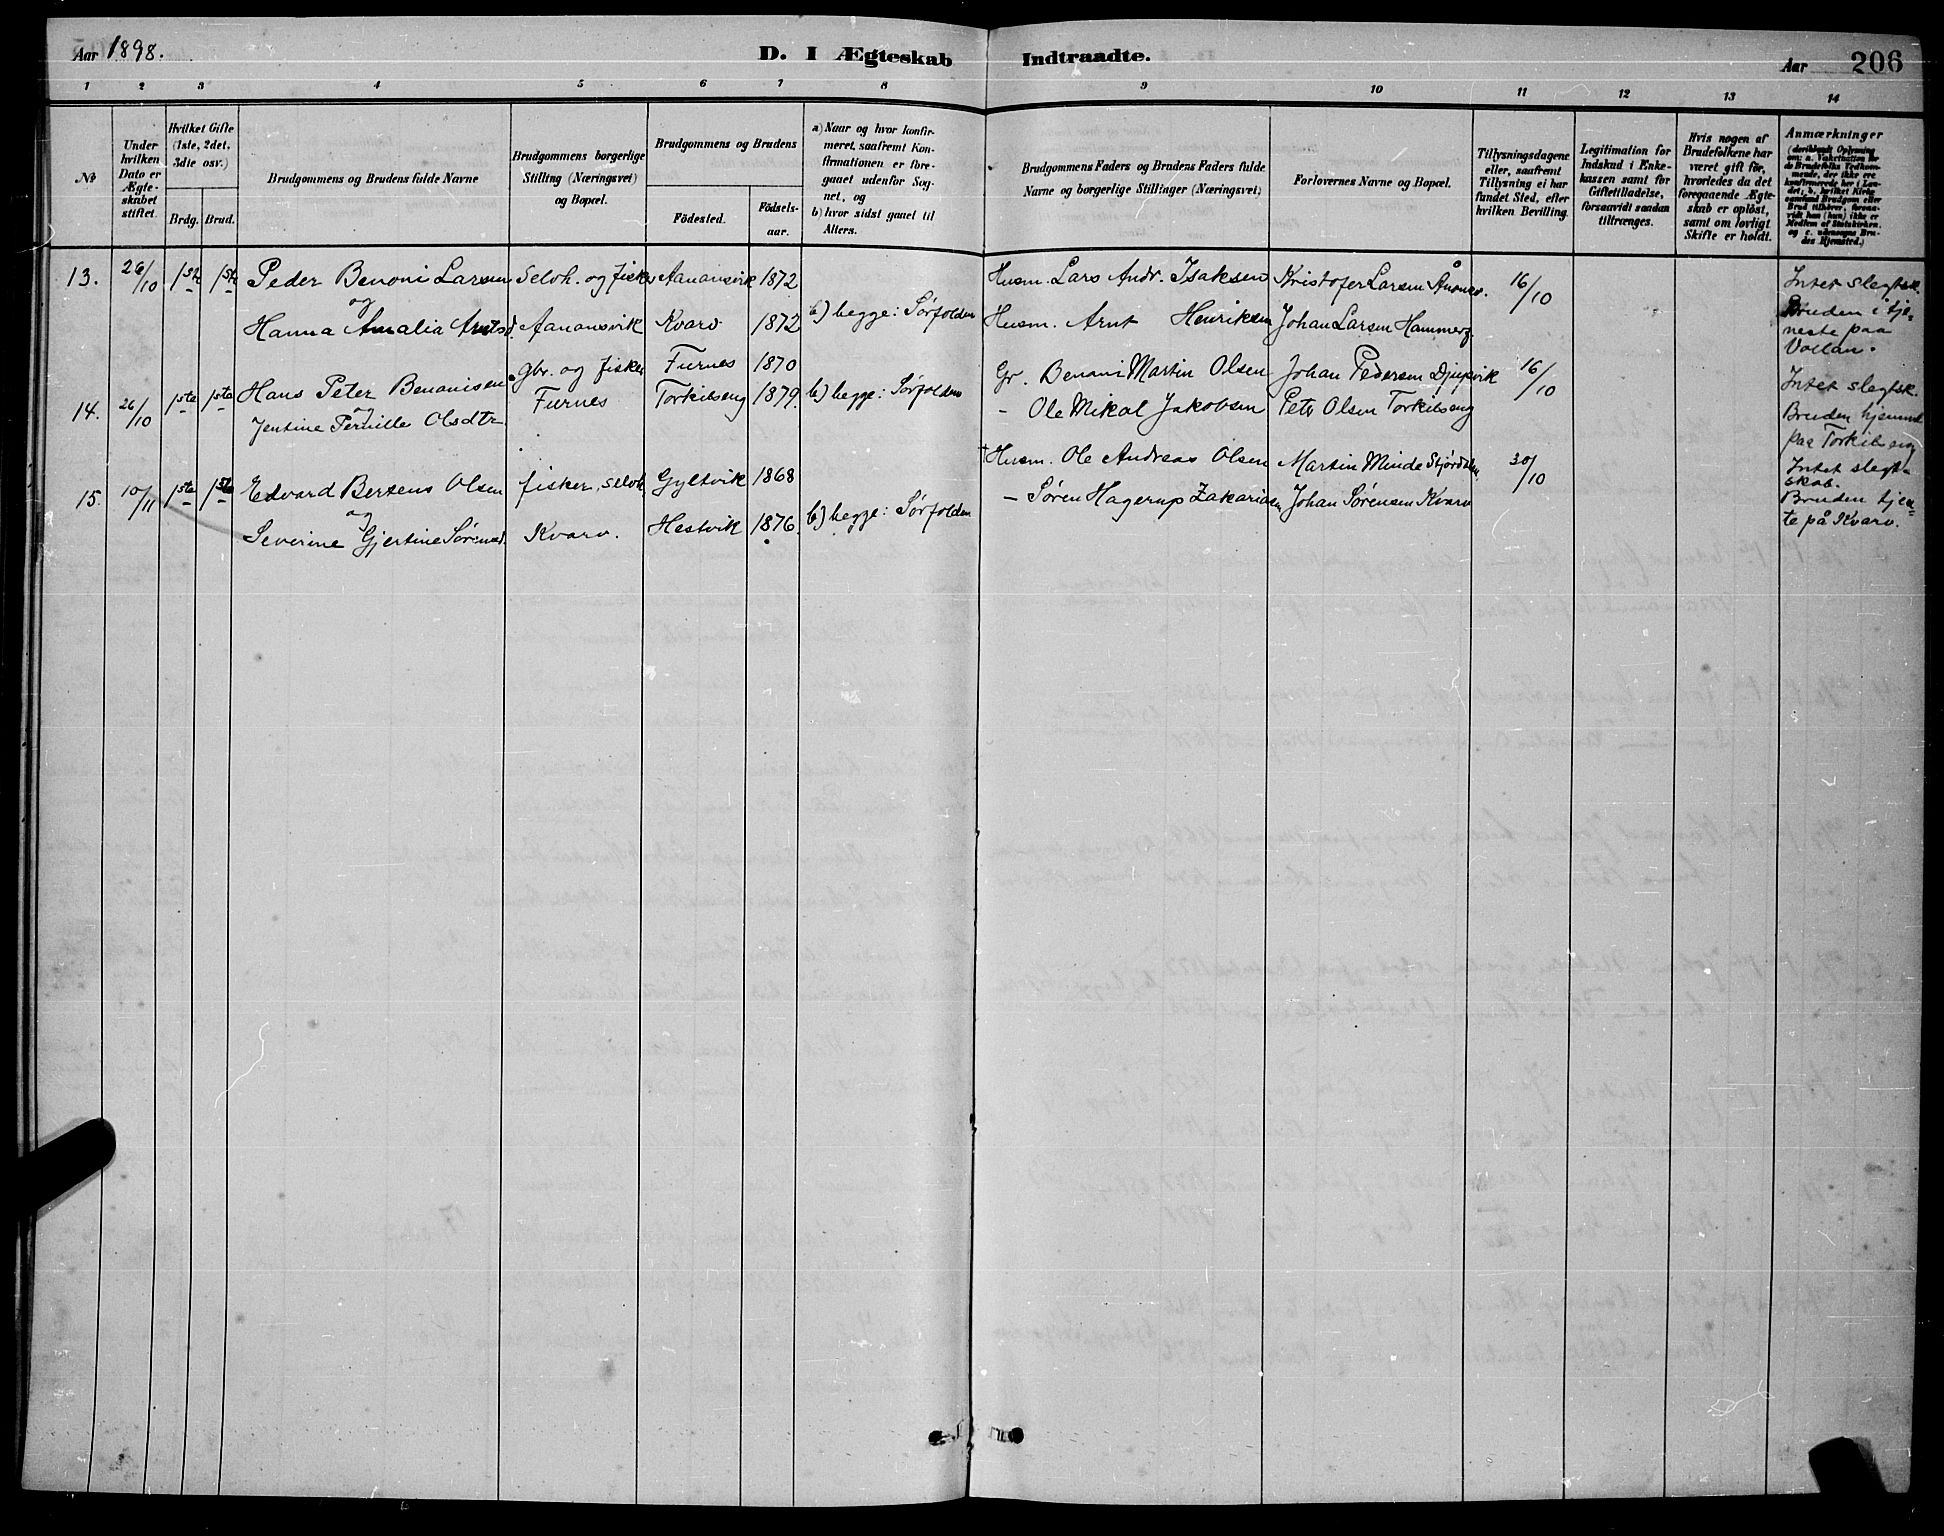 Aar 1898. D. I Ægteskab Indtraadte. Aar 206
1 2 3 4 5 6 7 8 9 10 11 12 13 14
No
Under hvilken Dato er Ægteskabet stiftet.
Hvilket Gifte (1ste, 2det, 3die osv.)
Brdg. Brud.
Brudgommens og Brudens fulde Navne
Brudgommens borgerlige Stilling (Næringsvei) og Bopæl.
Brudgommens og Brudens
Fødested. Fødselsaar.
a) Naar og hvor konfirmeret, saafremt Konfirmationen er foregaaet udenfor Sognet, og
b) hvor sidst gaaet til Alters.
Brudgommens Faders og Brudens Faders fulde Navne og borgerlige Stillinger (Næringsvei)
Forlovernes Navne og Bopæl.
Tillysningsdagene eller, saafremt Tillysning ei har fundet Sted, efter hvilken Bevilling.
Legitimation for Indskud i Enkekassen samt for Giftetilladelse, forsaavidt saadan tiltrænges.
Hvis nogen af Brudefolkene har været gift før, hvorledes da det foregaaende Ægteskab er opløst, samt om lovligt Skifte er holdt.
Anmærkninger
13. 26/10 1ste 1ste Peder Benoni Larsen Selvh. og fisker Aanansvik 1872 Husm. Lars Andr. Isaksen Kristofer Larsen Ånnes. 16/10 Intet slegtsk.
og b) begge: Sørfolden Bruden i tje-
Hanna Amalia Arntsd. Aanansvik Kvarv 1872 Husm. Arnt Henriksen Johan Larsen neste paa
Vollan.
14. 26/10 1ste 1ste Hans Peter Benonisen Gbr. og fisker Furnes 1870 Gr. Benoni Martin Olsen Johan Pedersen Djupvik 16/10 Intet slegtsk.
og Furnes b) begge: Sørfolden Bruden hjemme
Jentine Pernille Olsdtr. Torkilseng 1879. - Ole Mikal Jakobsen Peter Olsen Torkilseng paa Torkilseng
15. 10/11 1ste 1ste Edvard Bertens Olsen fisker, selvh. Gyltvik 1868 † Husm. Ole Andreas Olsen Martin Minde Stjørdalen 30/10 Intet slegt-
og b) begge: Sørfolden skab.
Severine Gjertine Sørensd. Kvarv. Hestvik 1876. - Søren Hagerup Zakariasen Johan Sørensen Kvarv Bruden tjen-
te på Kvarv.